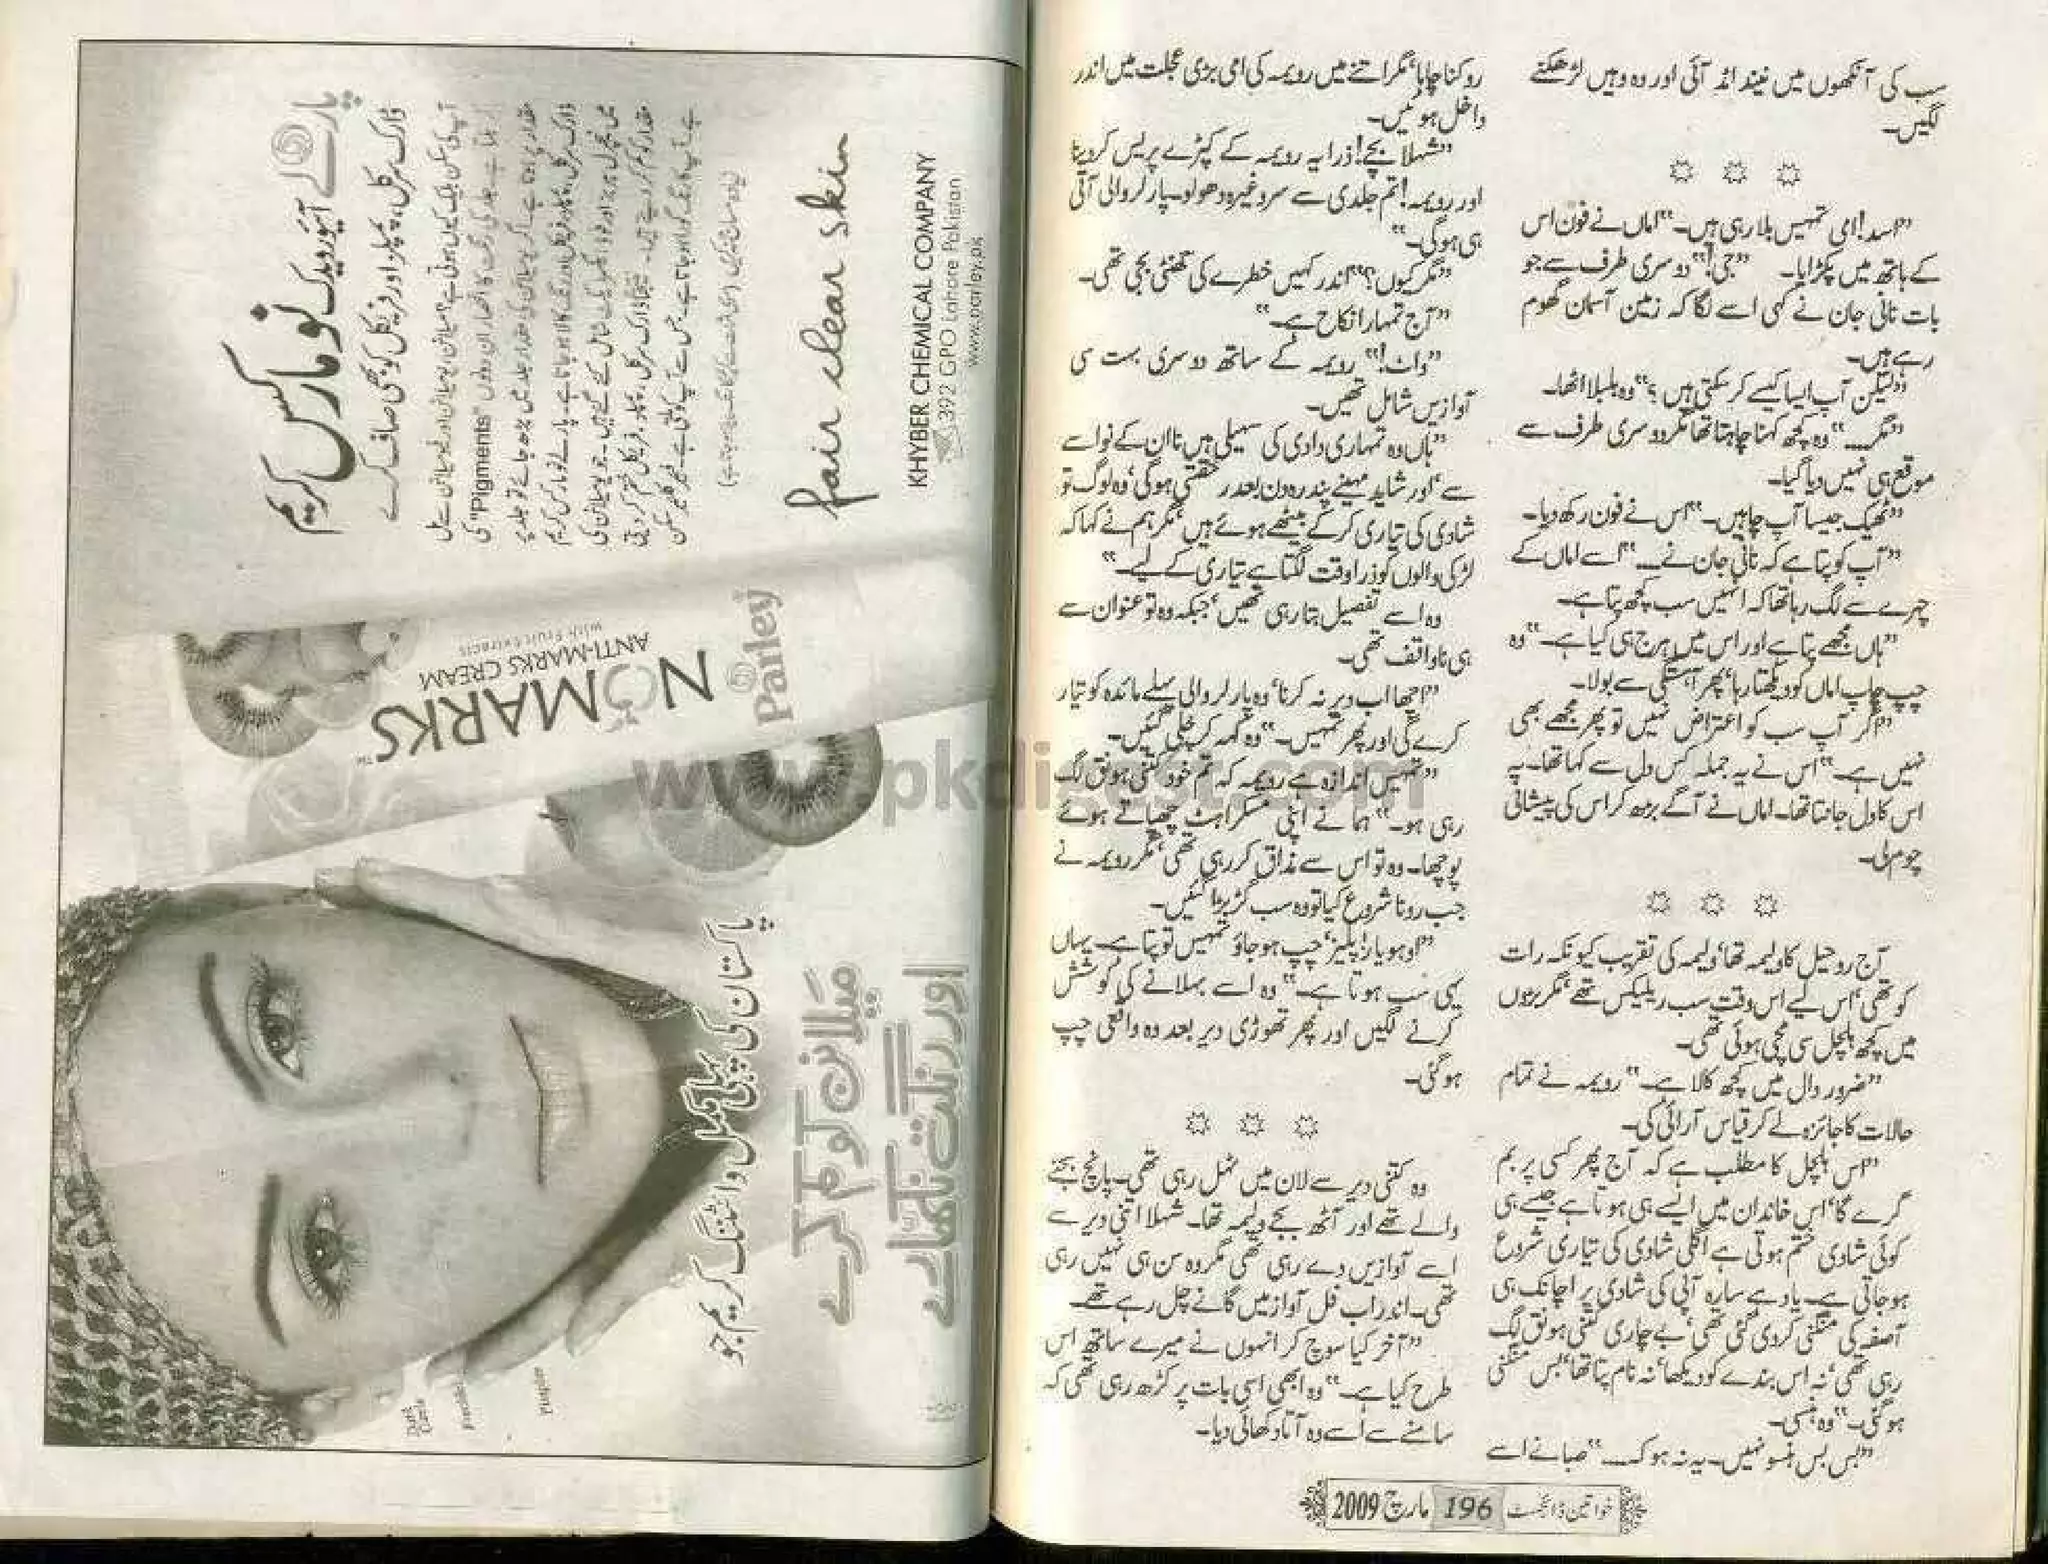 سب کی آنکھوں میں نیند امڈ آئی اور وہ وہیں لڑھکنے
لگیں۔
”اسد! امی تمہیں بلا رہی ہیں۔“ اماں نے فون اس
کے ہاتھ میں پکڑایا۔ ”جی!“ دوسری طرف سے جو
بات نانی جان نے کہی اسے لگا کہ زمین آسمان گھوم
رہے ہیں۔
”لیکن آپ ایسا کیسے کر سکتی ہیں؟“ وہ بلبلا اٹھا۔
”مگر.....“ وہ کچھ کہنا چاہتا تھا مگر دوسری طرف سے
موقع ہی نہیں دیا گیا۔
”ٹھیک جیسا آپ چاہیں۔“ اس نے فون رکھ دیا۔
”آپ کو پتا ہے کہ نانی جان نے....“ اسے اماں کے
چہرے سے لگ رہا تھا کہ انہیں سب کچھ پتا ہے۔
”ہاں مجھے پتا ہے اور اس میں ہرج ہی کیا ہے۔“ وہ
چپ چاپ اماں کو دیکھتا رہا، پھر آہستگی سے بولا۔
”اگر آپ سب کو اعتراض نہیں تو پھر مجھے بھی
نہیں ہے۔“ اس نے یہ جملہ کس دل سے کہا تھا۔ یہ
اس کا دل جانتا تھا۔ اماں نے آگے بڑھ کر اس کی پیشانی
چوم لی۔
آج روحیل کا ولیمہ تھا، ولیمہ کی تقریب کیونکہ رات
کو تھی، اس لیے اس وقت سب ریلیکس تھے، مگر بڑوں
میں کچھ ہلچل سی مچی ہوئی تھی۔
”ضرور دال میں کچھ کالا ہے۔“ رویمہ نے تمام
حالات کا جائزہ لے کر قیاس آرائی کی۔
”اس ہلچل کا مطلب ہے کہ آج پھر کسی پر بم
گرے گا، اس خاندان میں ایسے ہی ہوتا ہے جیسے ہی
کوئی شادی ختم ہوتی ہے اگلی شادی کی تیاری شروع
ہو جاتی ہے۔ یاد ہے سارہ آپی کی شادی پر اچانک ہی
آصفہ کی منگنی کر دی گئی تھی، بے چاری کتنی ہونق لگ
رہی تھی، نہ اس بندے کو دیکھا، نہ نام پتا تھا، بس منگنی
ہو گئی۔“ وہ ہنسی۔
”بس بس ہنسو نہیں۔ یہ نہ ہو کہ.....“ صبا نے اسے
روکنا چاہا، مگر اتنے میں رویمہ کی امی بڑی عجلت میں اندر
داخل ہوئیں۔
”شہلا بچے! ذرا یہ رویمہ کے کپڑے پریس کر دینا
اور رویمہ! تم جلدی سے سر وغیرہ دھو لو۔ پارلر والی آتی
ہی ہوگی۔“
”مگر کیوں؟“ اندر کہیں خطرے کی گھنٹی بجی تھی۔
”آج تمہارا نکاح ہے۔“
”واٹ!“ رویمہ کے ساتھ دوسری بہت سی
آوازیں شامل تھیں۔
”ہاں وہ تمہاری دادی کی سہیلی ہیں نا ان کے نواسے
سے، اور شاید مہینے پندرہ دن بعد رخصتی ہوگی، وہ لوگ تو
شادی کی تیاری کر کے بیٹھے ہوئے ہیں، مگر ہم نے کہا کہ
لڑکی والوں کو ذرا وقت لگتا ہے تیاری کے لیے۔“
وہ اسے تفصیل بتا رہی تھیں، جبکہ وہ تو عنوان سے
ہی ناواقف تھی۔
”اچھا اب دیر نہ کرنا، وہ پارلر والی پہلے مائدہ کو تیار
کرے گی اور پھر تمہیں۔“ وہ کہہ کر چلی گئیں۔
”تمہیں اندازہ ہے رویمہ کہ تم خود کتنی ہونق لگ
رہی ہو۔“ ہما نے اپنی مسکراہٹ چھپاتے ہوئے
پوچھا۔ وہ تو اس سے مذاق کر رہی تھی، مگر رویمہ نے
جب رونا شروع کیا تو وہ سب گڑبڑا گئیں۔
”اوہو یار! پلیز، چپ ہو جاؤ تمہیں تو پتا ہے۔ یہاں
یہی سب ہوتا ہے۔“ وہ اسے بہلانے کی کوشش
کرنے لگیں اور پھر تھوڑی دیر بعد وہ واقعی چپ
ہو گئی۔
وہ کتنی دیر سے لان میں ٹہل رہی تھی۔ پانچ بجنے
والے تھے اور آٹھ بجے ولیمہ تھا۔ شہلا اتنی دیر سے
اسے آوازیں دے رہی تھی مگر وہ سن ہی نہیں رہی
تھی۔ اندر اب فل آواز میں گانے چل رہے تھے۔
”آخر کیا سوچ کر انہوں نے میرے ساتھ اس
طرح کیا ہے۔“ وہ ابھی اسی بات پر کڑھ رہی تھی کہ
سامنے سے اسے وہ آتا دکھائی دیا۔
خواتین ڈائجسٹ 196 مارچ 2009
پاکستان کی پہلی مکمل وائٹننگ کریم جو
میلانن کو کم کرے
اور رنگت نکھارے
NOMARKS™
ANTI-MARKS CREAM
with Fruit Extracts
Parley
پارلے
آیورویدک نومارکس کریم
ڈارک سرکل، پمپلز اور فریکل کو بھی صاف کرے
fair clear skin
KHYBER CHEMICAL COMPANY
392 GPO Lahore Pakistan
www.parley.pk
Dark Circle
Freckle
Pimples
www.pkdigest.com